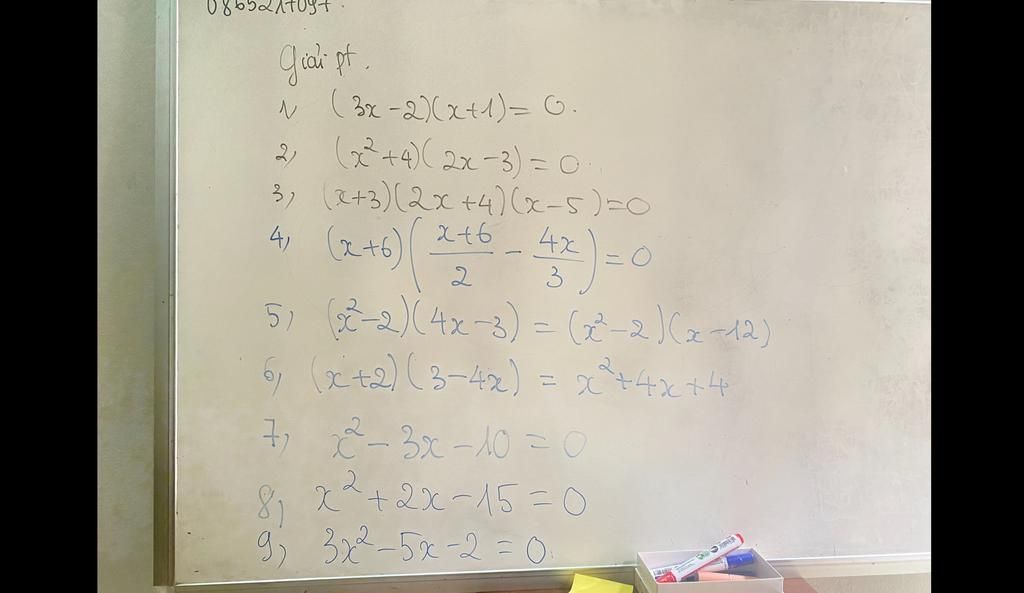 Giải pt.
1) (3x-2)(x+1) = 0.
2) (x²+4)(2x-3) = 0.
3) (x+3)(2x+4)(x-5) = 0
4) (x+6)((x+6)/2 - 4x/3) = 0
5) (x²-2)(4x-3) = (x²-2)(x-12)
6) (x+2)(3-4x) = x²+4x+4
7) x²-3x-10 = 0
8) x²+2x-15 = 0
9) 3x²-5x-2 = 0.